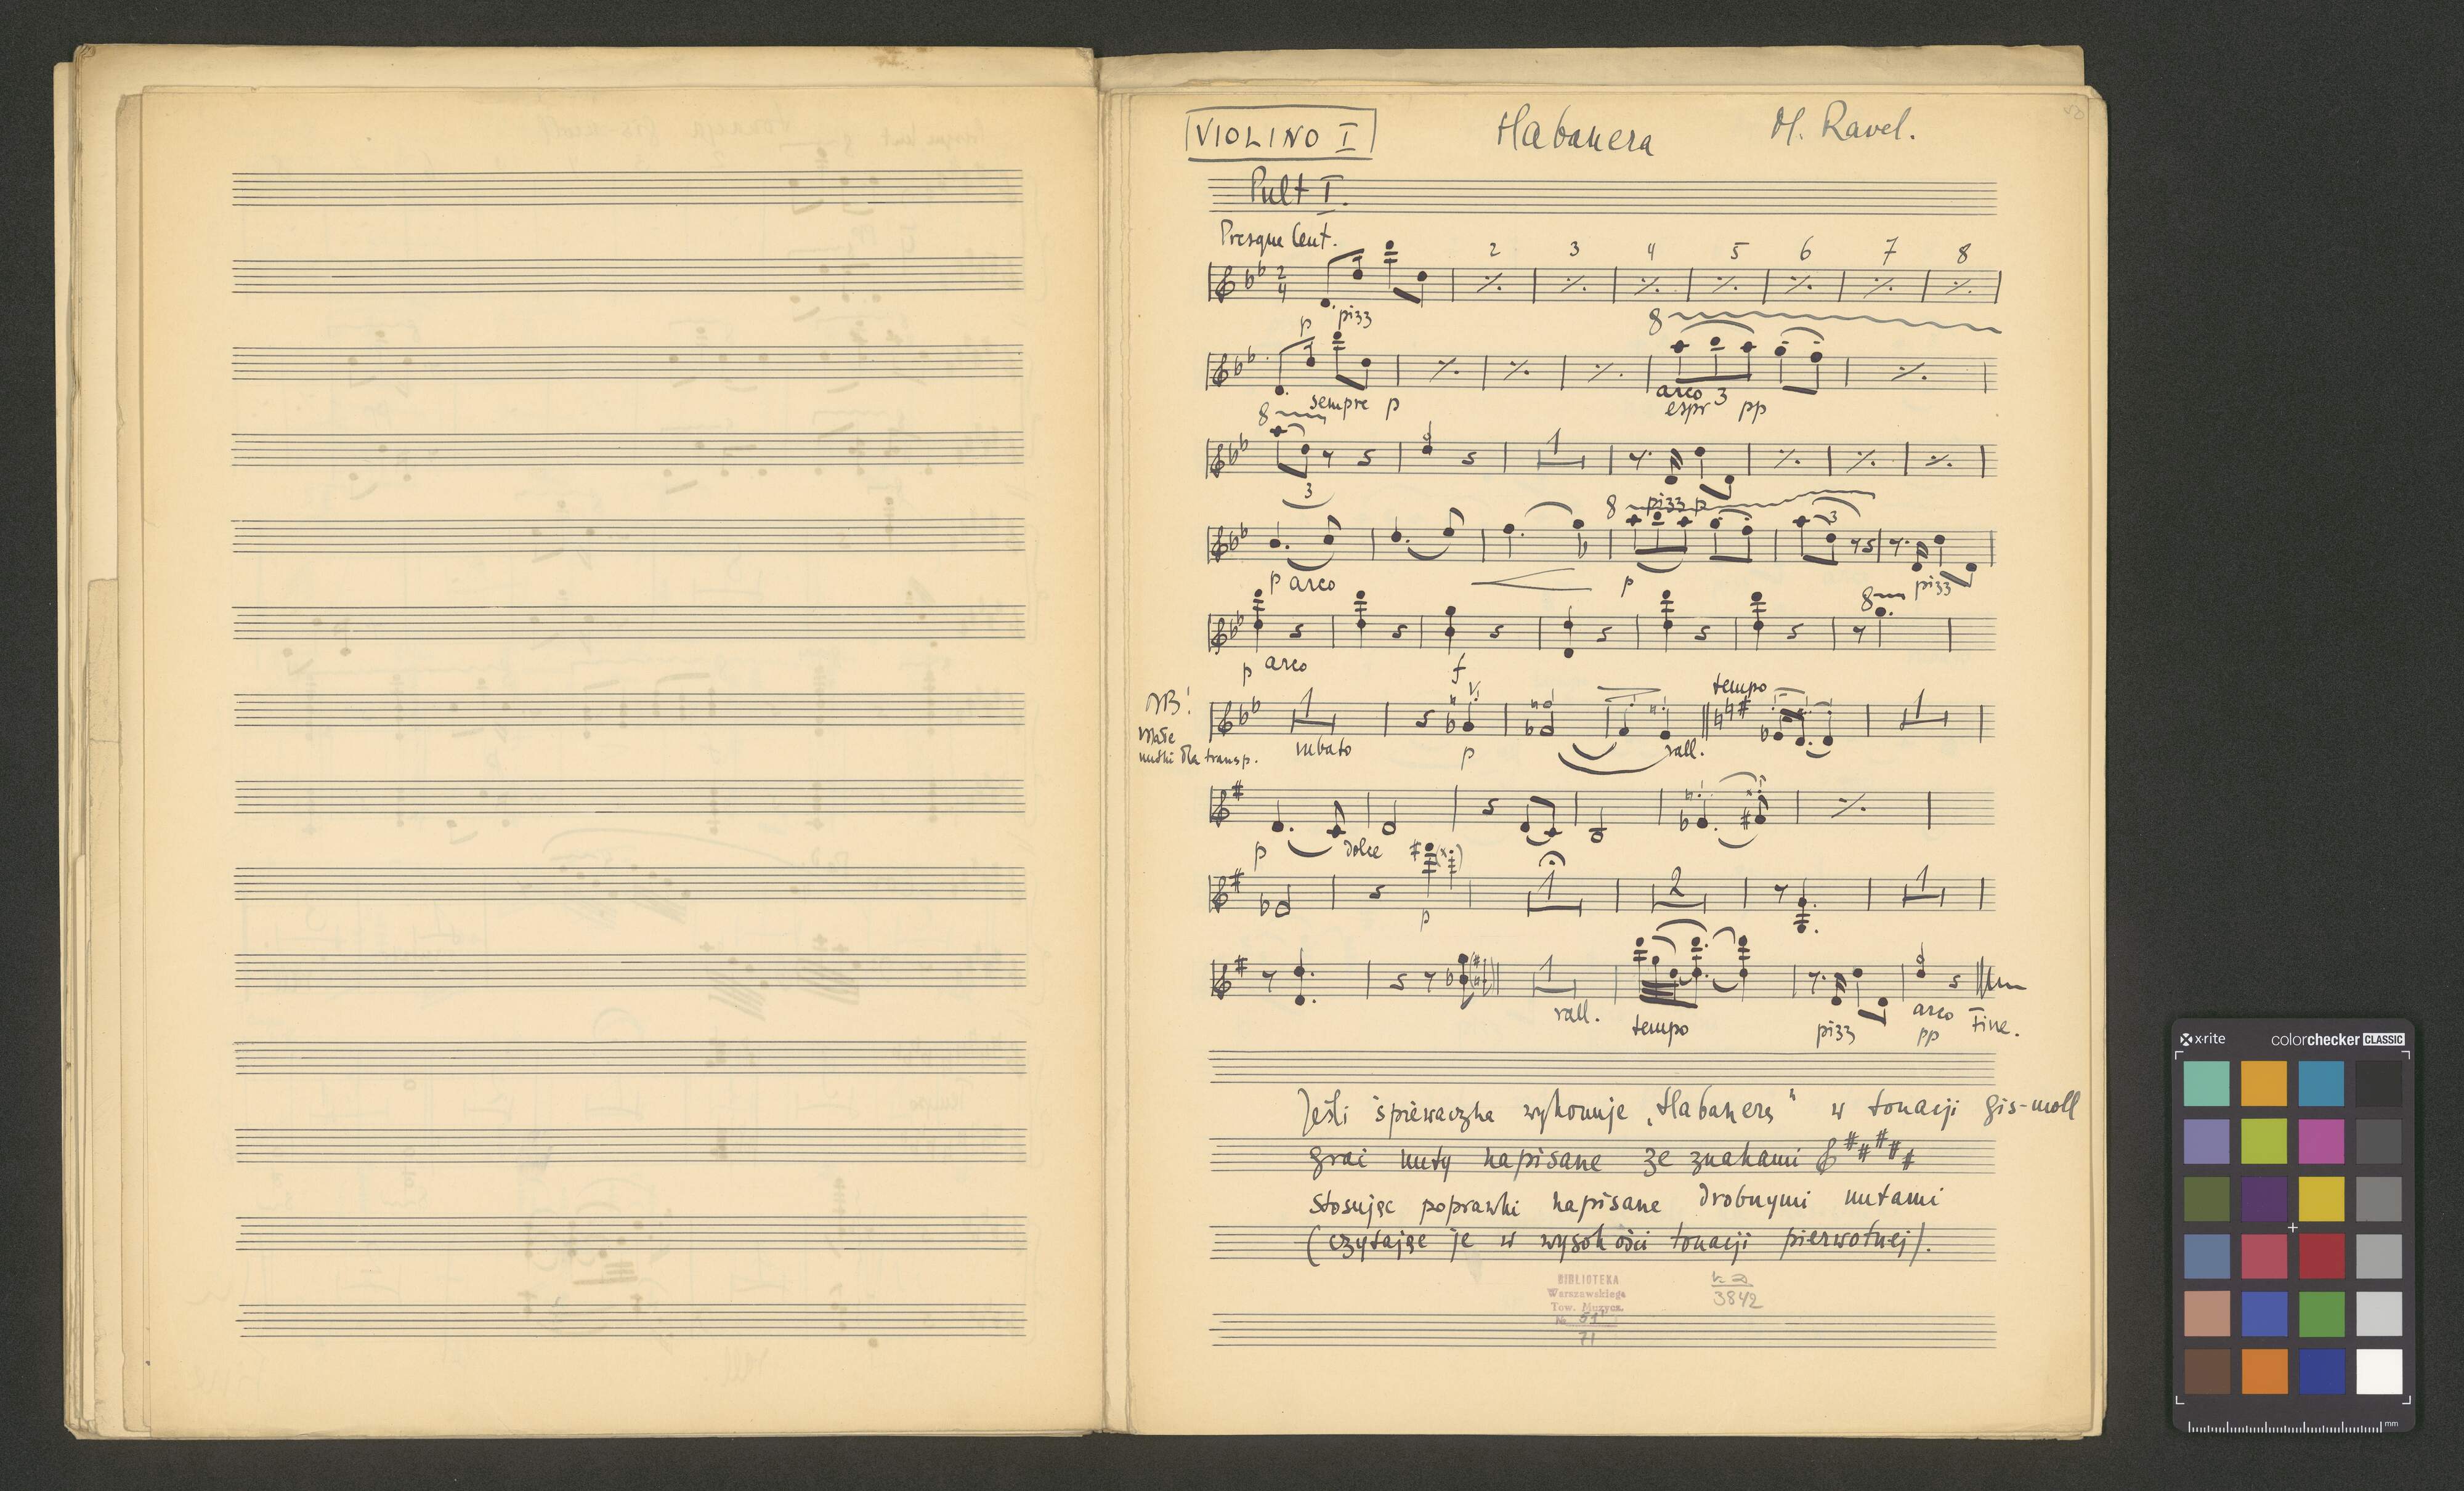 VIOLINO I Habanera M. Ravel.
Pult I.
Presque lent.
2 3 4 5 6 7 8
p pizz
8
sempre p arco espr 3 pp
8
1
3
8 pizz p
3
p arco p pizz
8
p arco f
NB! tempo
Małe nutki dla transp.
1 1
rubato p rall.
p dolce
1 2 1
p
1
rall. tempo pizz arco pp Fine.
Jeśli śpiewaczka wykonuje „Habanerę" w tonacji gis-moll
grać nuty napisane ze znakami
stosując poprawki napisane drobnymi nutami
(czytając je w wysokości tonacji pierwotnej).
BIBLIOTEKA
Warszawskiego
Tow. Muzycz.
№ 51
71
3842
x-rite colorchecker CLASSIC
mm